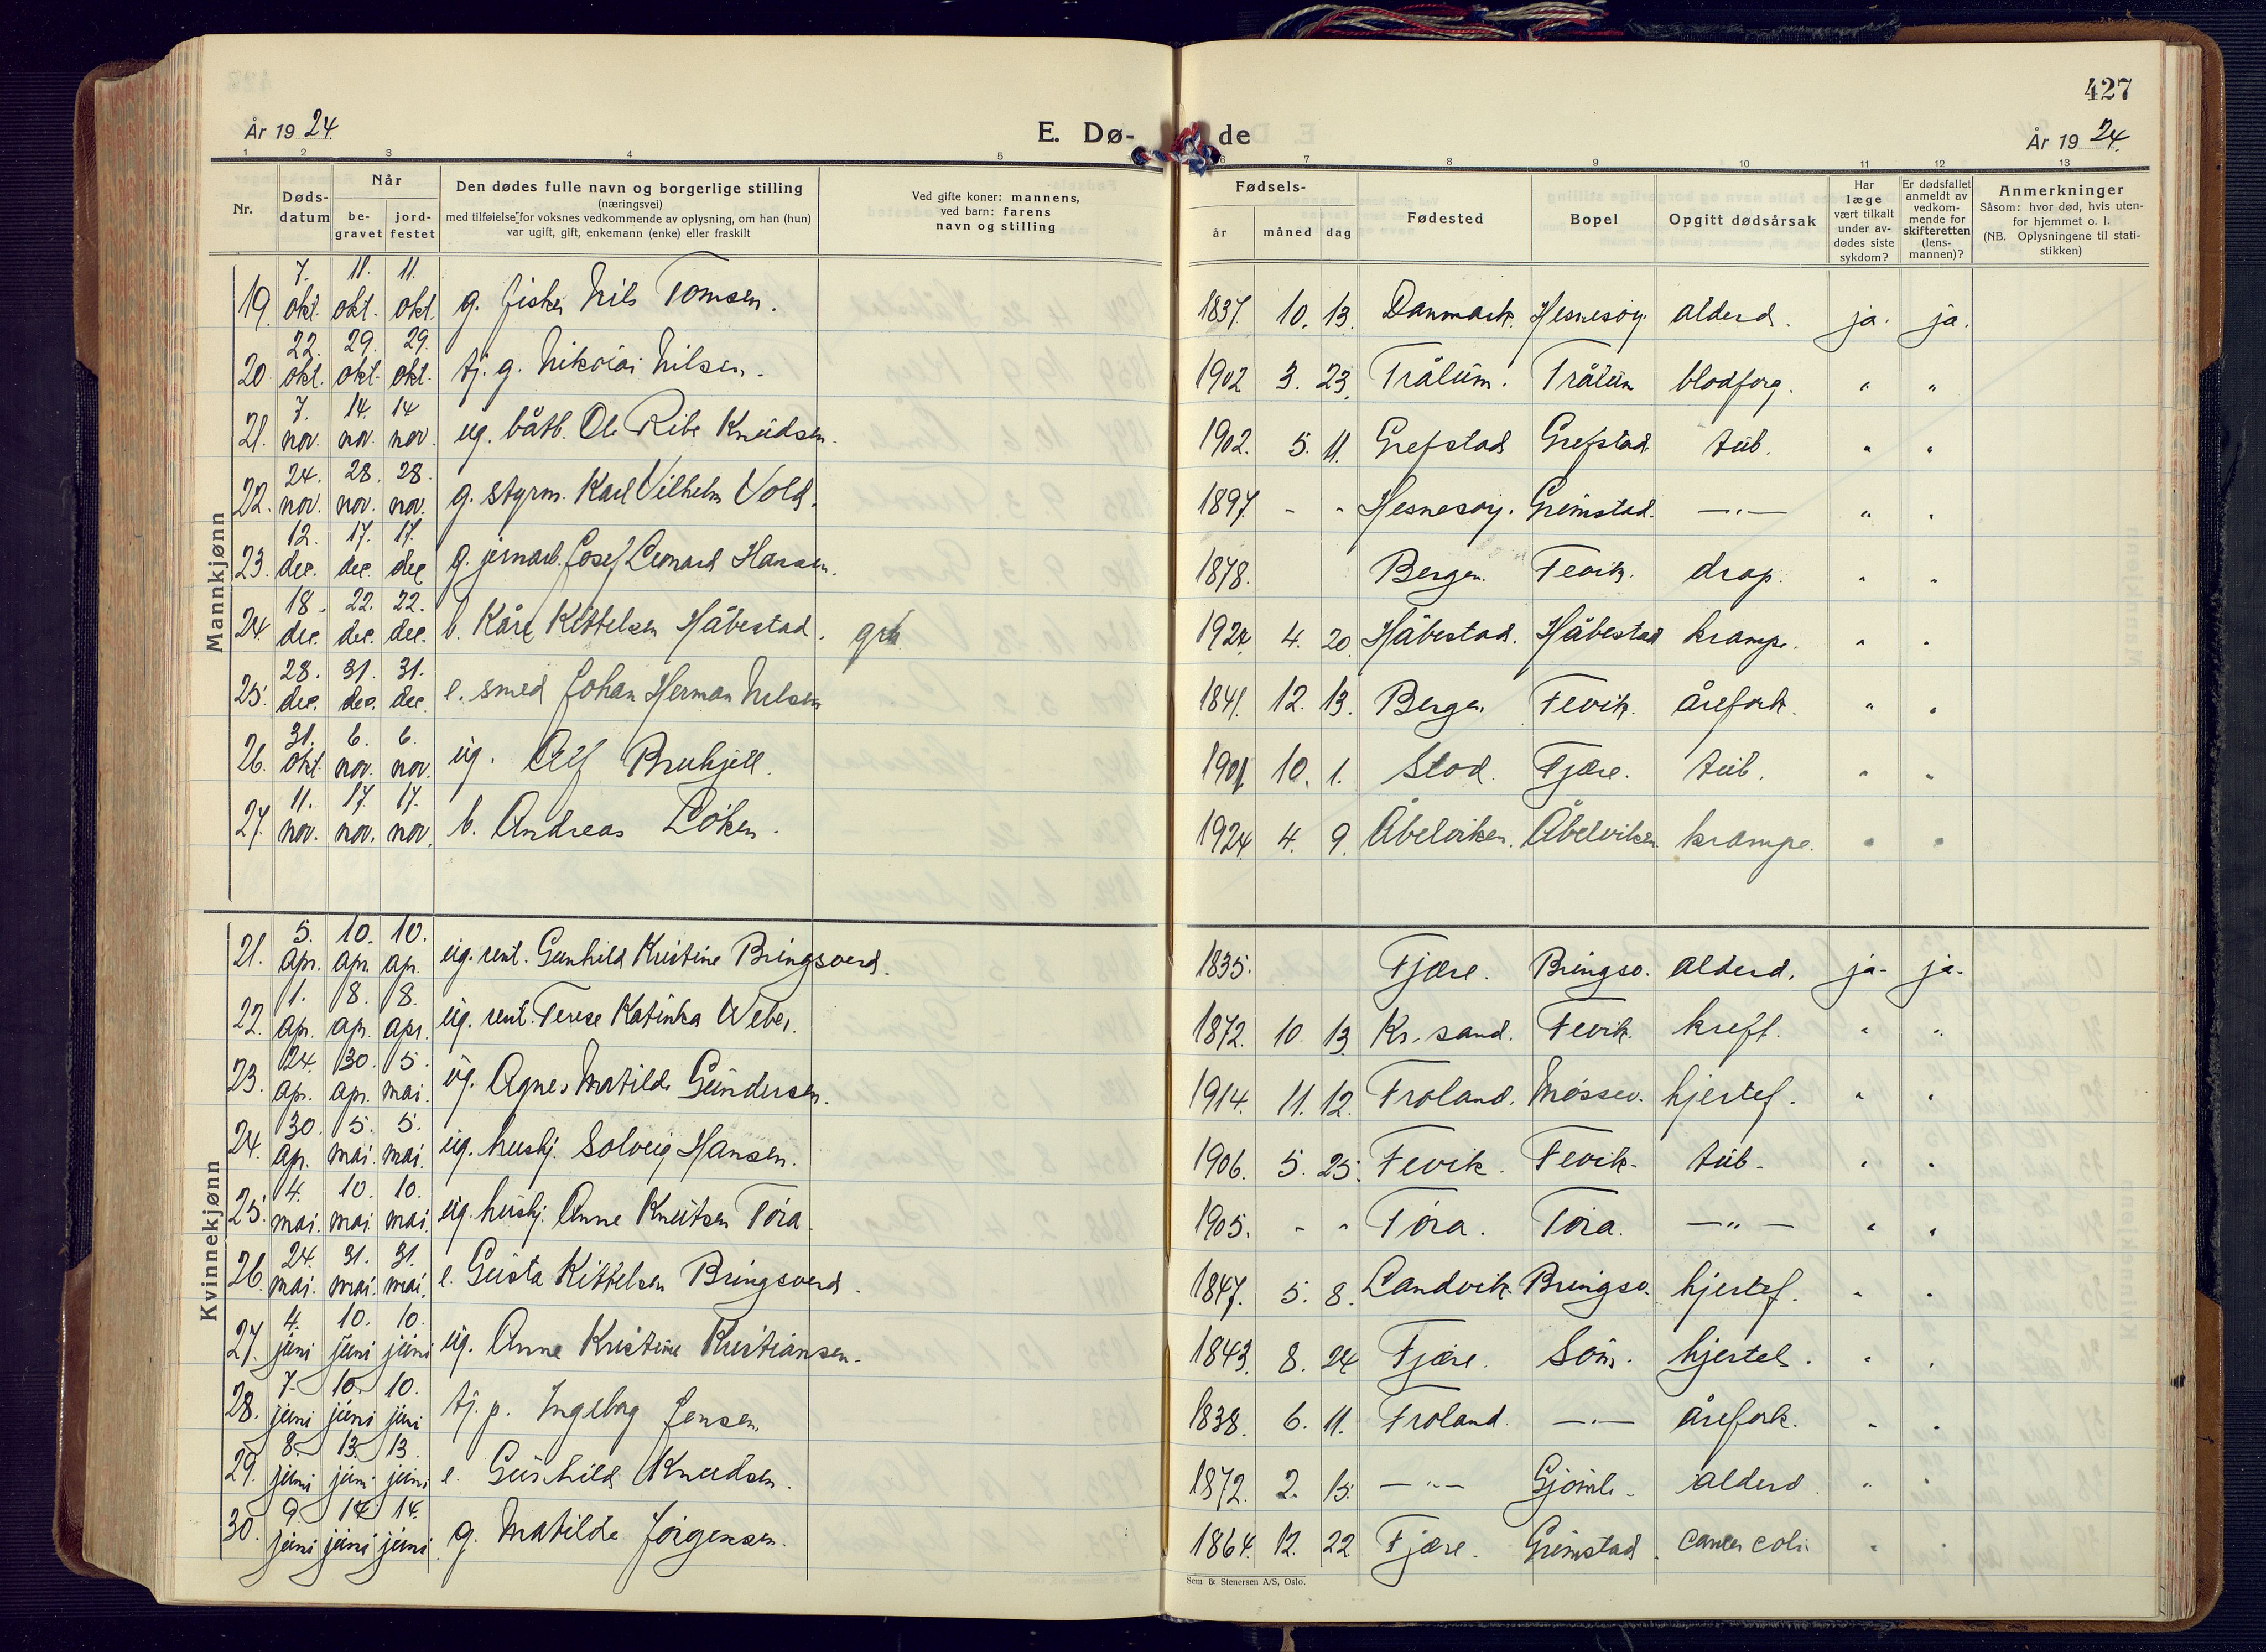 427
År 1924.
E. Dø-de
År 1924.
1 2 3 4 5 6 7 8 9 10 11 12 13
Nr. Døds-datum Når be-gravet jord-festet Den dødes fulle navn og borgerlige stilling (næringsvei) med tilføielse for voksnes vedkommende av oplysning, om han (hun) var ugift, gift, enkemann (enke) eller fraskilt Ved gifte koner: mannens, ved barn: farens navn og stilling Fødsels- år måned dag Fødested Bopel Opgitt dødsårsak Har læge vært tilkalt under av-dødes siste sykdom? Er dødsfallet anmeldt av vedkom-mende for skifteretten (lens-mannen)? Anmerkninger Såsom: hvor død, hvis uten-for hjemmet o. l. (NB. Oplysningene til stati-stikken)
Mannkjønn
19. 7. okt. 11. okt. 11. okt. g. fisker Nils Tomsen. 1837. 10. 13. Danmark. Hesnesøy. alderd. ja. ja.
20. 22. okt. 29. okt. 29. okt. tj. g. Nikolai Nilsen. 1902 3. 23. Trålum. Trålum blodforg. " "
21. 7. nov. 14. nov. 14 nov. ug. båtb. Ole Ribe Knudsen. 1902. 5. 11. Grefstad Grefstad. tub. " "
22. 24. nov. 28. nov. 28. nov. g. styrm. Karl Vilhelm Vold. 1897. - - Hesnesøy. Grimstad. —"— " "
23. 12. dec. 17. dec. 17. dec g. jernarb. Josef Leonard Hansen. 1878. Bergen. Fevik. drap. " "
24. 18. dec. 22. dec. 22. dec. b. Kåre Kittelsen Håbestad. 1924. 4. 20. Håbestad. Håbestad krampe. " "
25. 28. dec. 31. dec. 31. dec. e. smed Johan Herman Nilsen 1841. 12. 13. Bergen Fevik. årefork. " "
26. 31. okt. 6. nov. 6. nov. ug. Alf Bruhjell. 1901 10. 1. Stod. Fjære. tub. " "
27. 11. nov. 17. nov. 17. nov. b. Andreas Löken. 1924. 4. 9. Åbelviken. Åbelviken. krampe. " "
Kvinnekjønn
21. 5. apr. 10. apr. 10. ap. ug. rent. Gunhild Kristine Bringsverd. 1835. Fjære. Bringsv. alderd. ja. ja.
22. 1. ap. 8. ap. 8. apr. ug. rent. Terese Katinka Weber. 1872. 10 13. Kr. sand. Fevik. kreft. " "
23. 24. ap. 30. ap. 5. mai. ug. Agnes Matilde Gundersen. 1914. 11. 12. Froland. hjertef. " "
24. 30. ap. 5. mai. 5. mai. ug. hushj. Solveig Hansen. 1906. 5. 25. Fevik. Fevik. tub. " "
25. 4. mai. 10. mai. 10. mai. ug. hushj. Anne Knutsen Töra. 1905. - - Töra. Töra. —"— " "
26. 24. mai. 31. mai. 31. mai. e. Gusta Kittelsen Bringsverd. 1847. 5. 8. Landvik. Bringsv. hjertef. " "
27. 4. juni 10. juni 10. juni ug. Anne Kristine Kristiansen. 1843. 8. 24 Fjære. Söm. hjertel. " "
28. 7. juni 10. juni 10. juni tj. p. Ingeborg Jensen. 1838. 6. 11. Froland. —"— årefork. " "
29. 8. juni 13. juni 13. juni e. Gunhild Knudsen. 1872. 2. 15. —"— alderd. " "
30. 9. juni 14 juni 14. juni g. Matilde Jörgensen. 1864. 12. 22 Fjære. Grimstad. cancer coli " "
Sem & Stenersen A/S, Oslo.